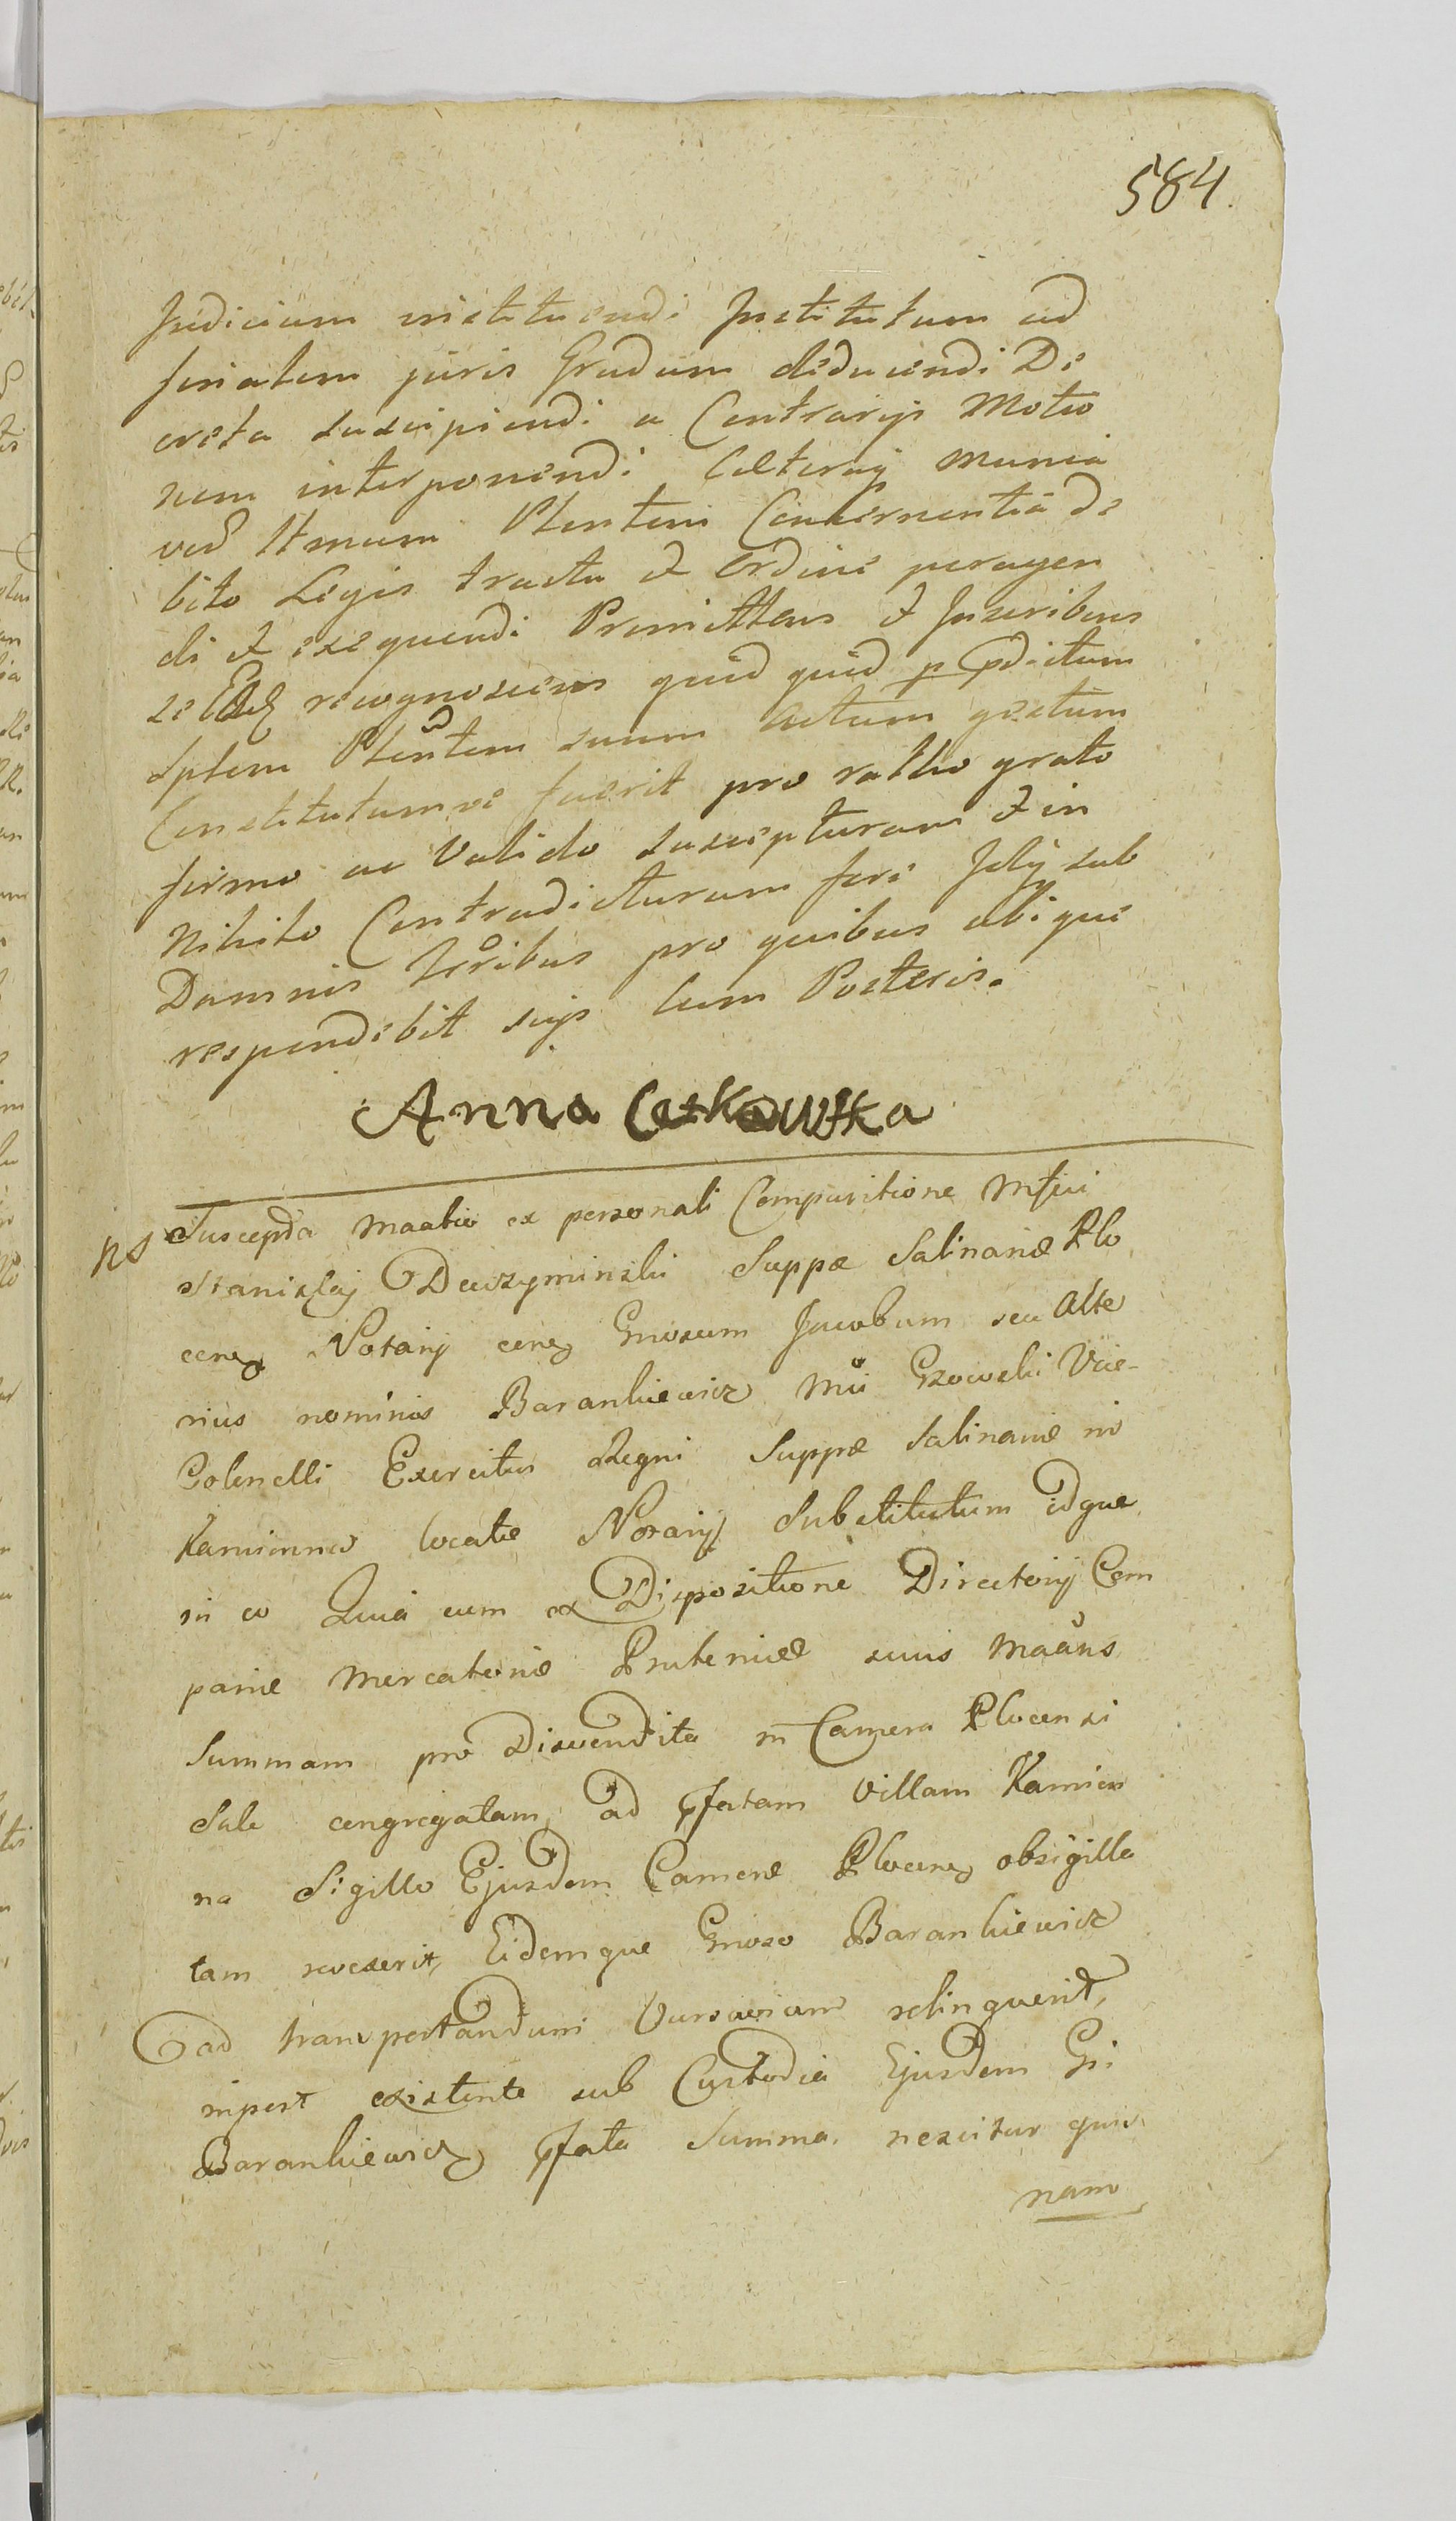 584.
Judicium instituendi Institutum ad
finalem juris Gradum deducendi De
creta suscipiendi a Contrarijs Motio
nem interponendi Caeteraq munia
Ptentem Concernentia de
bito Legis tractu et Ordine peragen
di et exequendi Promittens et Inscribens
se recognoscens quid quid p pdictum
Sptem Ptentem suum Actum gestum
Constitutumve fuerit pro ratto grato
firmo ac Valido suscepturam et in
Nihilo Contradicturam fore sub
Damnis Trribus pro quibus ubique
respondebit suis cum Posteris.
Anna Ceskowska
ns Suscepta ex personali Comparitione Mfici
Stanislaj Dewszyminski Suppae Salinariae Plo
cens Notarij cens Gnosum Jacobum seu Alte
rius nominis Barankiewicz Mci Grzowski Vice-
Colonelli Exercitus Regni Suppae Salinariae in
Kamionna locatae Notarij Substitutum idque
in eo Quia cum ex Dispositione Directorij Com
paniae Mercatoriae Prutenicae suis
Summam pro Disvendita in Camera Plocensi
Sale congregatam ad pfatam Villam Kamion
na Sigillo Ejusdem Camerae Plocens obsigilla
tam revexerit, Eidemque Gnoso Barankiewicz
ad transportandum Varsaviam relinquerit,
inpost existente sub Custodia Ejusdem Gi
Barankiewicz pfata Summa nescitur quo
nam